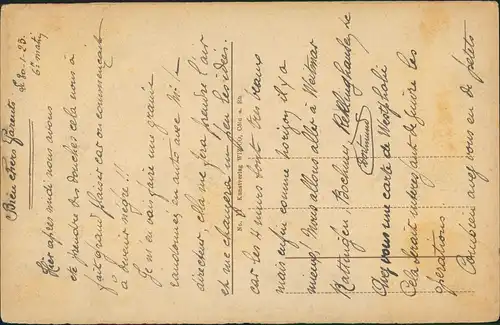 le 30-1-23.
6h matin
Bien chers Parents,
Hier après midi nous avons
été prendre des douches, cela nous à
fait grand plaisir car on commençait
à devenir nègre!!
Je m'en vais faire une grande
randonnée en auto avec Mr le
directeur, cela me fera prendre l'air
et me changera un peu les idées.
car les 4 murs sont très beaux
mais enfin comme horizon il y a
mieux. Nous allons aller à Weitmar
Hattingen, Bochum, Recklinghausen,
Dortmund
Avez vous une carte de Westphalie
Cela serait intéressant de suivre les
opérations.
Combien avez vous eu de petits
No. Kunstverlag WIRCO, Cöln a. Rh.